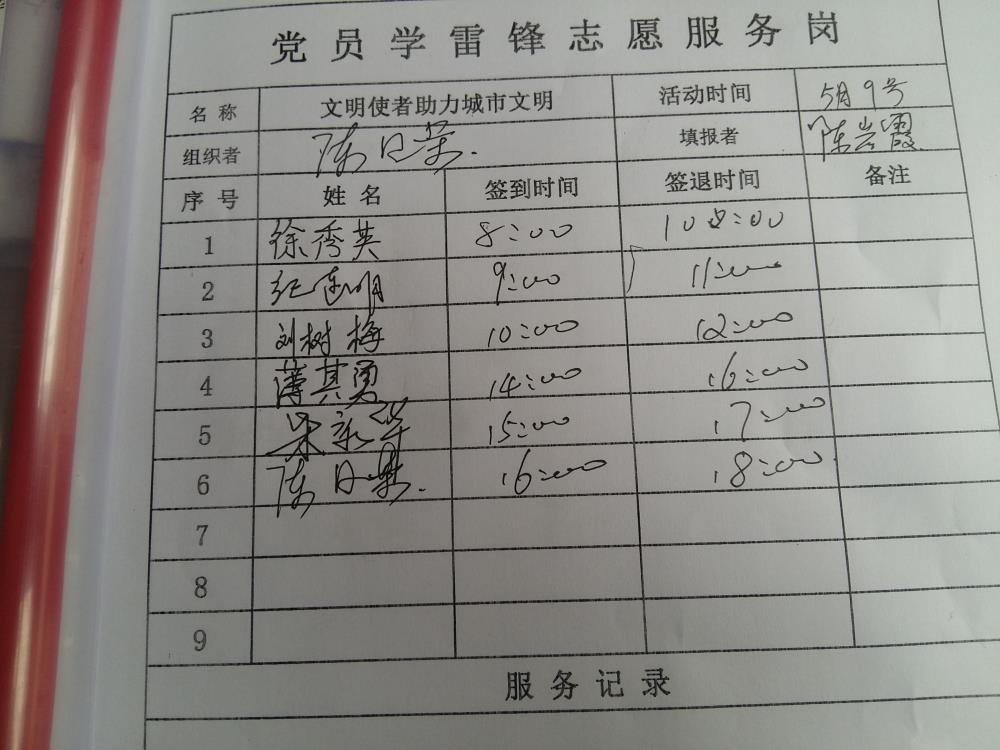 党员学雷锋志愿服务岗
名称 文明使者助力城市文明 活动时间 5月9号
组织者 陈日荣 填报者 陈岩霞
序号 姓名 签到时间 签退时间 备注
1 徐秀英 8:00 10:00
2 9:00 11:00
3 刘树梅 10:00 12:00
4 薄其勇 14:00 16:00
5 15:00 17:00
6 陈日荣 16:00 18:00
7
8
9
服务记录